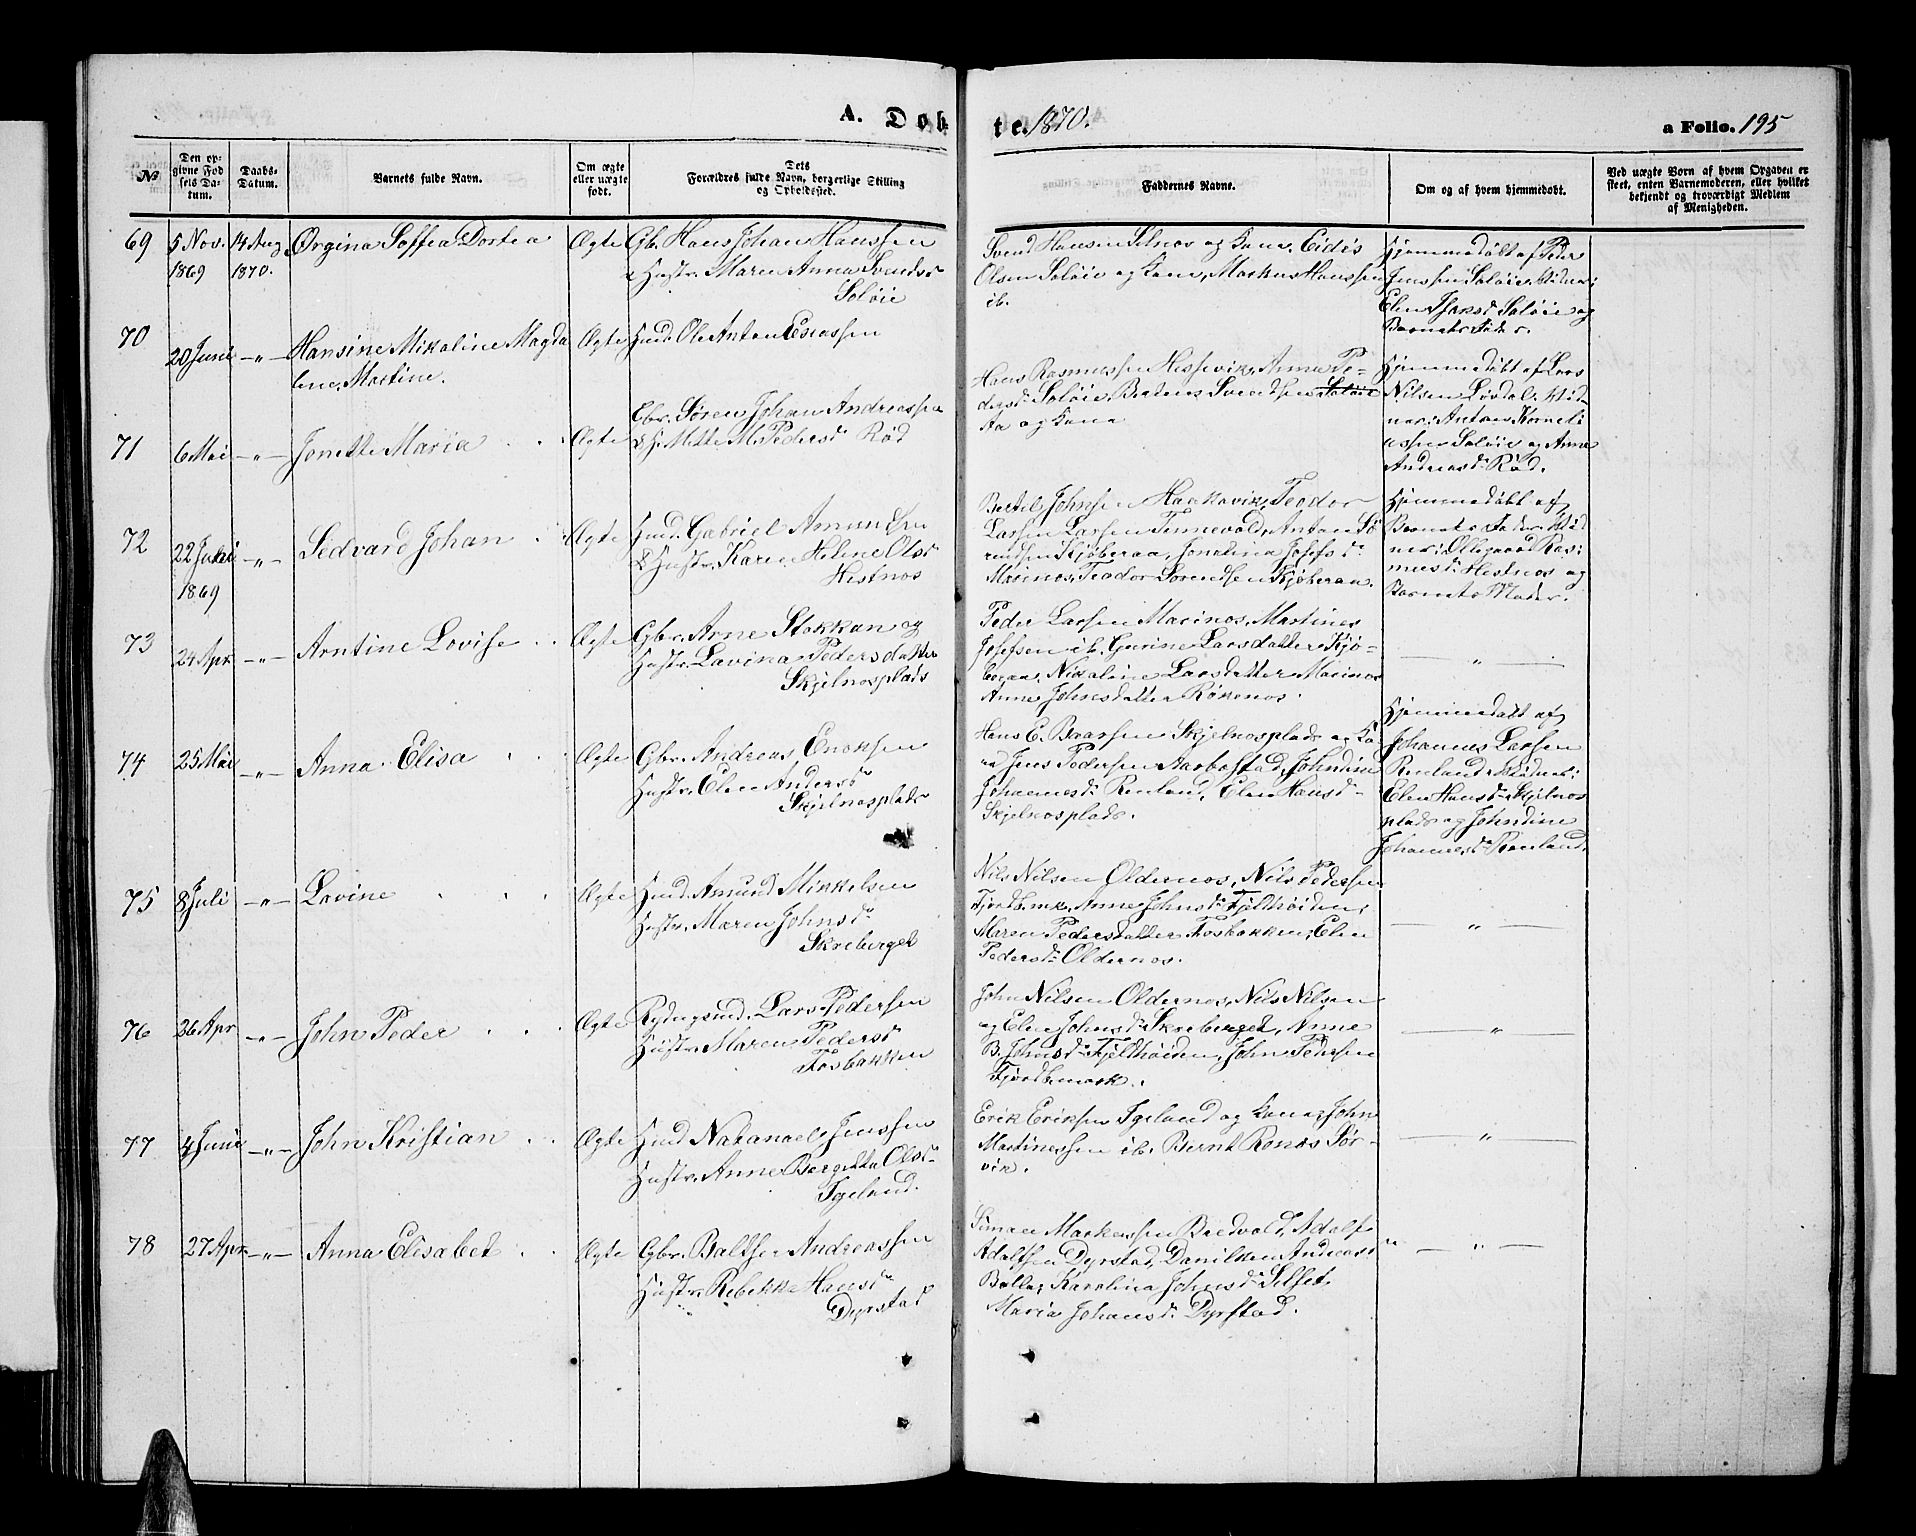 A. Døbte. 1870.
a Folio. 195
№
Den opgivne Fødselsdatum.
Daabs-Datum.
Barnets fulde Navn.
Om ægte eller uægte født.
Dets Forældres fulde Navn, borgerlige Stilling og Opholdssted.
Faddernes Navne.
Om og af hvem hjemmedøbt.
Ved uægte Børn af hvem Opgaven er skeet, enten Barnemoderen, eller hvilket bekjendt og troværdigt Medlem af Menigheden.
69
5 Nov. 1869
14 Aug 1870.
Ørgina Soffia Dortea
Ægte
Gb. Hans Johan Hanssen
& Hustr. Maren Anna Svendsd
Soløie
Svend Hansen Selnos og Kone,
Olsen Soløie og Kone, Markus Hanssen
ib.
Hjemmedøbt af Peder
Jenssen Soløie, Vidner:
Elen Isaksd Soløie og
Barnets Fader.
70
20 Juni
-"-
Hansine Mikaline Magda
lene Martine.
Ægte
Hmd. Ole Anton Esiassen
Hans Rasmussen Hessevik, Anna Pe-
dersd Soløie, Svendsen Soløie
og Kone
Hjemmedøbt af Lars
Nilsen Løvdal, Vid-
ner: Anton Korneli
assen Soløie og Anne
Andreasd Rød.
71
6 Mai
-"-
Jonette Maria
Ægte
Gbr. Søren Johan Andreassen
& H. Mette M. Pedersd Rød
Bertil Johnsen Haakavik, Teodor
Larsen Larsen Tennevold, Anton Sø
rensen Kjøberaa, Josefsd
Masinos, Teodor Sørensen Kjøberaa.
Hjemmedøbt af
Barnets Fader, Vid
ner: Ollegaard Ras-
musd Hestnos og
Barnets Moder.
72
22 Juli 1869
-"-
Sedvard Johan
Ægte
Hmd. Gabriel Amundsen
& Hustr. Karen Helene Olsd
Hestnos
73
24 Apr
-"-
Arntine Lovise
Ægte
Gbr. Arne Stokkan og
Hustr. Lavina Pedersdatter
Skjelnosplads
Peder Larsen Masinos, Martines
Josefsen ib. Gurine Larsdatter Kjø-
beraa, Nikoline Larsdatter Masinos
Anne Johnsdatter Røkenos.
-"-
74
25 Mai
-"-
Anna Elisa
Ægte
Gbr. Andreas Enoksen
Hustr. Elen Andersd
Skjelnosplads
Hans E. Skjelnosplads og Ko
na Jens Pedersen Aarbostad, Johndine
Johannesd Renland, Elen Hansd
Skjelnosplads.
Hjemmedøbt af
Johannes Larsen
Renland, Vidner:
Elen Hansd Skjelnos
plads og Johndine
Johannesd Renland.
75
8 Juli
-"-
Lovine
Ægte
Hmd. Amund Mikkelsen
Hustr. Maren Johnsd
Skreberget
Nils Nilsen Oldernos, Nils Pedersen
Fjordbmk, Anne Johnsd Fjeldhøiden,
Maren Pedersdatter Fosbakken, Elen
Pedersd Oldernos.
-"-
76
26 Apr
-"-
John Peder
Ægte
Rydngsmd. Lars Pedersen
Hustr. Maren Pedersd
Fosbakken
John Nilsen Oldernos, Nils Nilsen
og Elen Johnsd Skreberget, Anne
B. Johnsd Fjeldhøiden, John Pedersen
Fjordbmark.
-"-
77
4 Juni
-"-
John Kristian
Ægte
Hmd Natanael Jenssen
Hustr. Anne Bergitta Olsd
Igeland.
Erik Eriksen Igeland og Kone, John
Martinessen ib. Bernt Ronos Sør-
vik.
-"-
78
27 Apr
-"-
Anna Elisabet
Ægte
Gbr. Baltser Andreassen
Hustr. Rebekka Hansd
Dyrstad
Simon Markussen Bredvold, Adolf
Adolfsen Dyrstad, Andreasd
Balla, Karolina Johnsd Selset,
Maria Johansd Dyrstad.
-"-